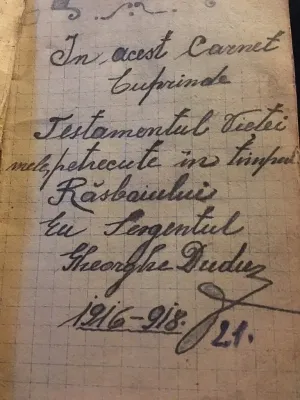 In acest Carnet
Cuprinde
Testamentul Vieței
mele, petrecute în timpul
Răsboiului
Eu Sergentul
Gheorghe Duduz
1916-918.
21.